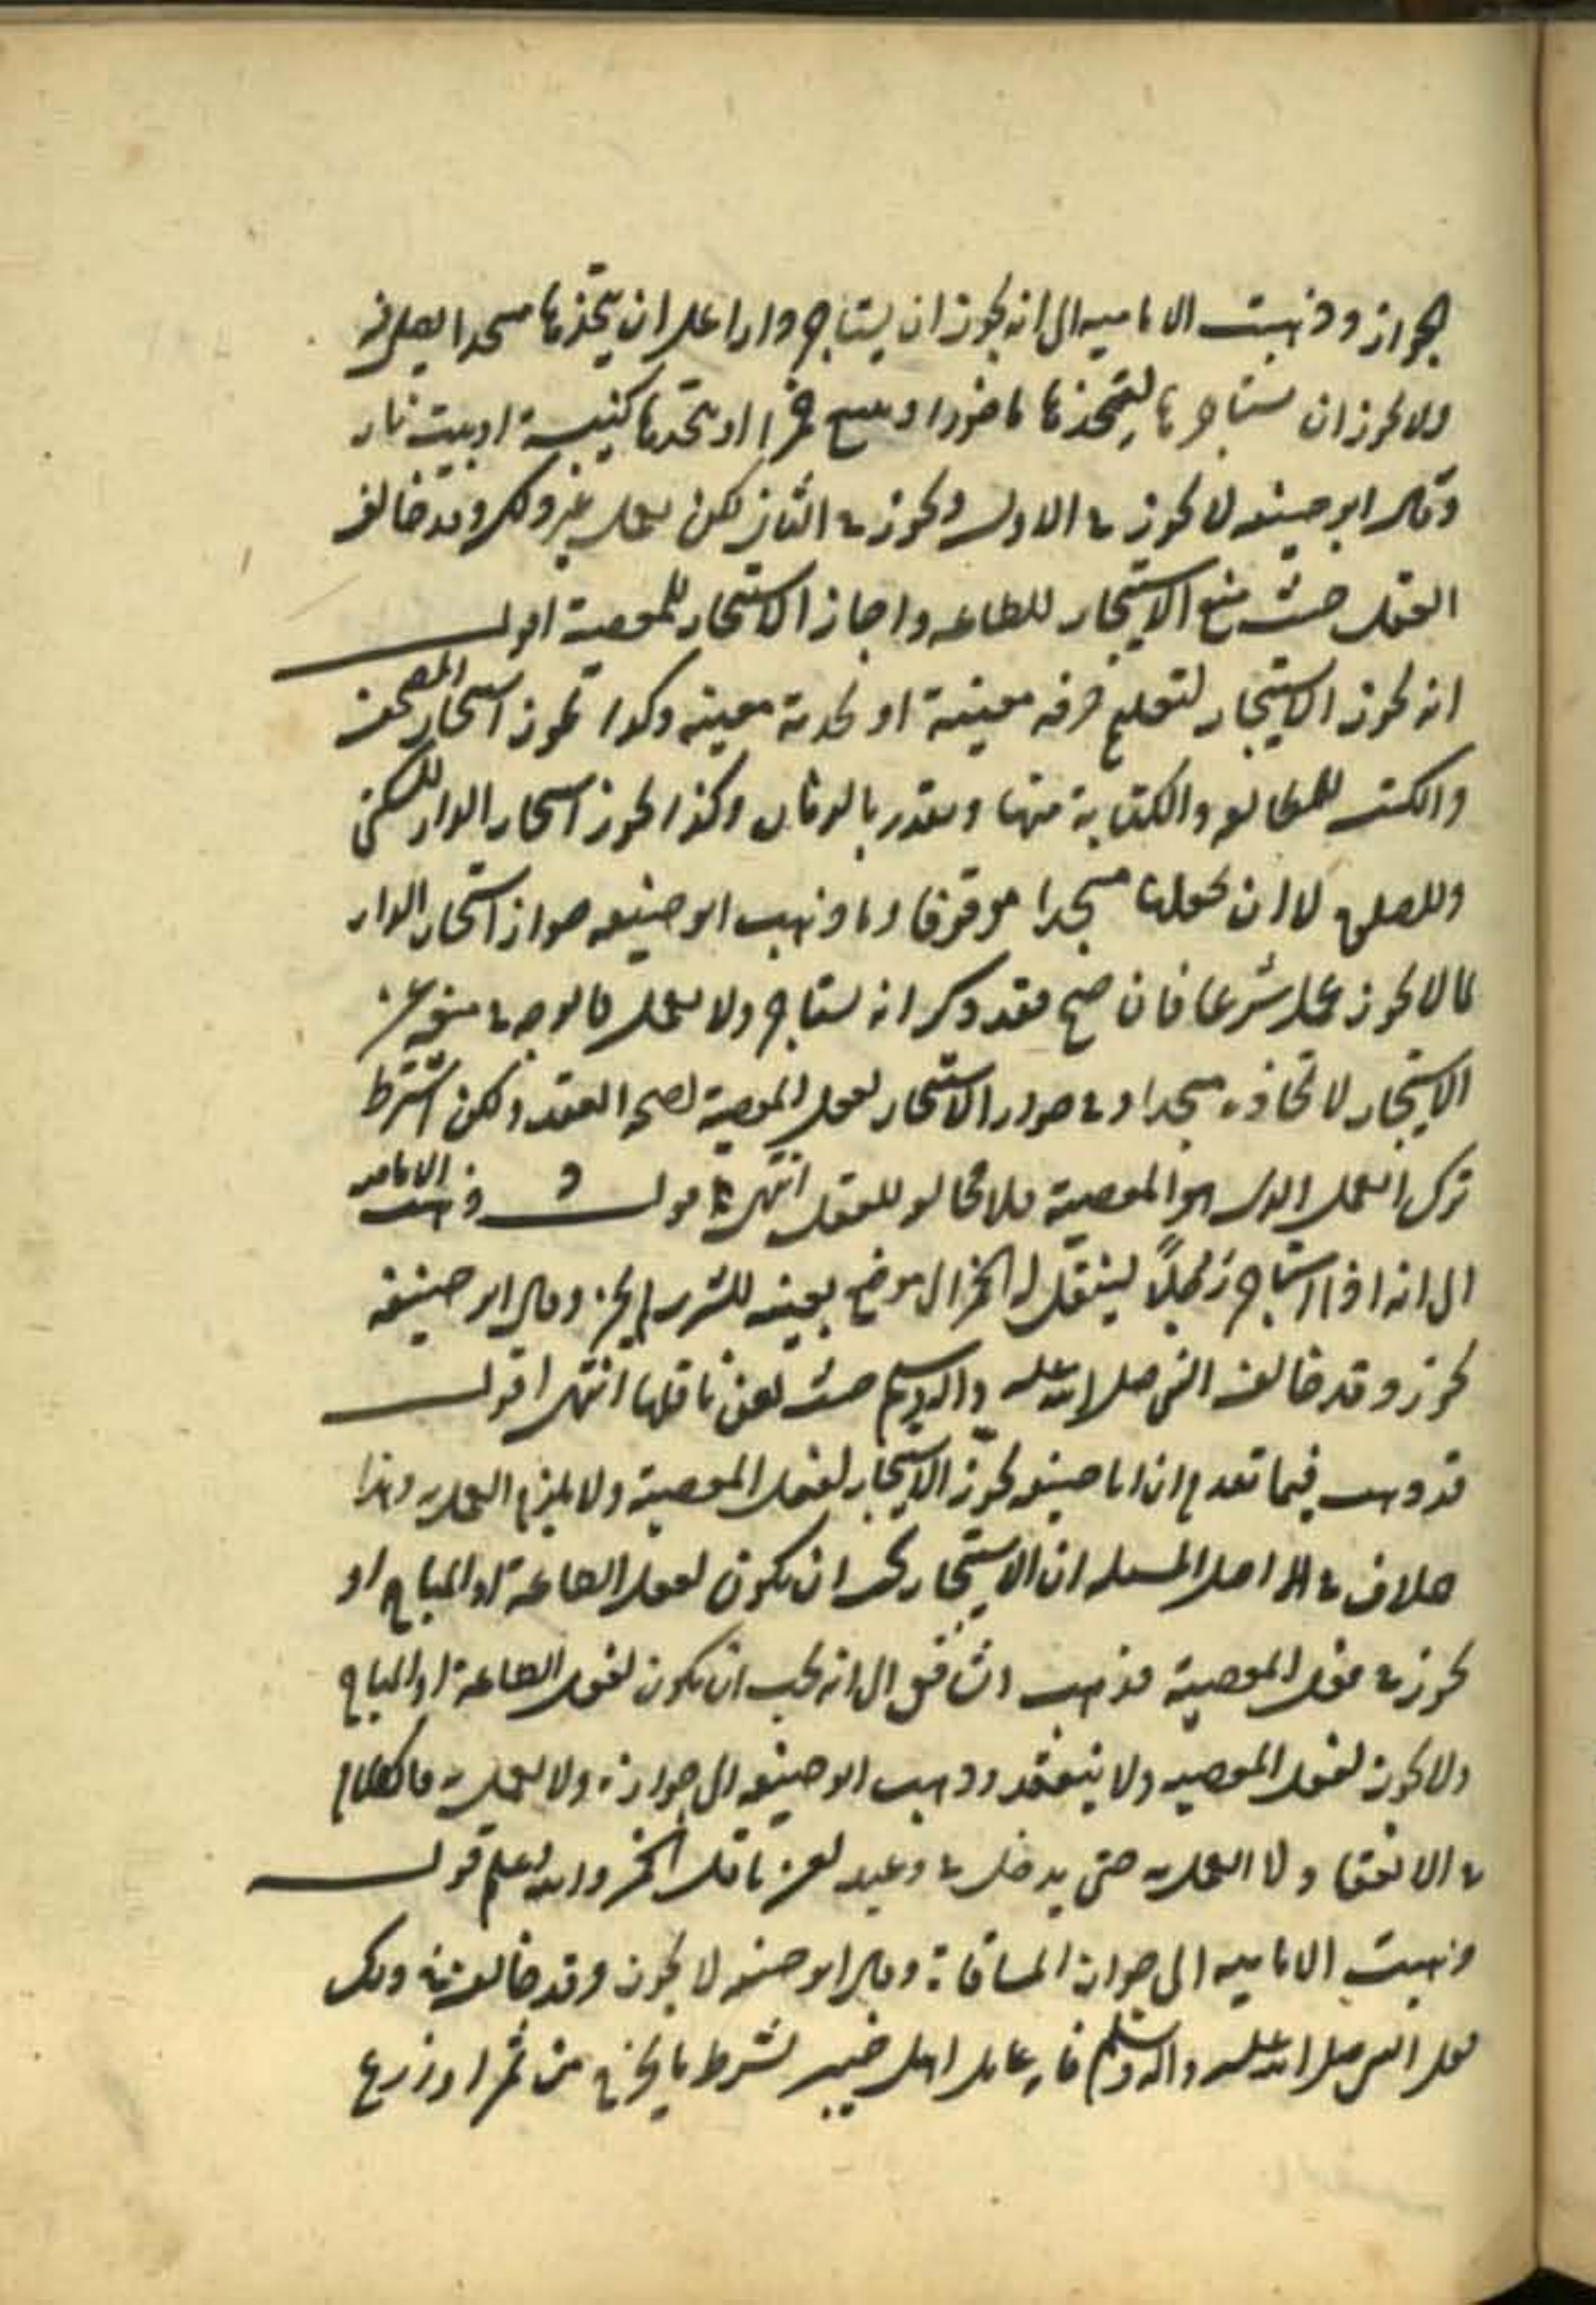 الجواز وذهبت الاماميه الى انه يجوز ان يستاجر دارا على ان يتخذها مسجدا يصلى فيه
ولا يجوز ان يستاجرها ليتخذها ماخورا او يبيع خمرا او يتخذها كنيسة او بيت نار
وقال ابو حنيفه لا يجوز في الاول ويجوز في الثانى لكن يعمل غير ذلك وقد خالف
العقل حيث منع الاستيجار للطاعه واجاز الاستيجار للمعصية اقول
انه يجوز الاستيجار لتعليم حرفه معينة او لخدمة معينه وكذا يجوز استيجار المصحف
والكتب للمطالعه والكتابة منها ويقدر بالزمان وكذا يجوز استيجار الدار للسكنى
وللصلوة لا ان يجعلها مسجدا موقوفا وما ذهب ابو حنيفه جواز استيجار الدار
لما لا يجوز عمله شرعا فان صح فقد ذكر انه يستاجر ولا يعمل فالوجه في منعه عن
الاستيجار لاتخاذه مسجدا و في جواز الاستيجار لفعل المعصية لصحة العقد ولكن اشترط
ترك العمل الذى هو المعصية فلا مخالفه للعقل انتهى قوله وذهبت الاماميه
الى انه اذا استاجر رجلاً لينقل له الخمر الى موضع بعينه للشرب لم يجز وقال ابو حنيفة
يجوز وقد خالف النبى صلى الله عليه واله وسلم حيث لعن ناقلها انتهى اقول
قد ذهب فيما تقدم ان ابا حنيفه يجوز الاستيجار لفعل المعصية ولا يلزم العمل به وهذا
خلاف في اصل المسئله ان الاستيجار يجب ان يكون لفعل الطاعة او المباح او
يجوز في فعل المعصية فذهب الشافعى الى انه يجب ان يكون لفعل الطاعة او المباح
ولا يجوز لفعل المعصيه ولا ينعقد وذهب ابو حنيفه الى جوازه ولا يعمل به فالكلام
في الانعقاد لا العمل به حتى يدخل في وعيد لعن ناقل الخمر والله اعلم قوله
وذهبت الاماميه الى جواز المساقاة وقال ابو حنيفه لا يجوز وقد خالف في ذلك
فعل النبى صلى الله عليه واله وسلم فانه عامل اهل خيبر بشرط ما يخرج من ثمر او زرع